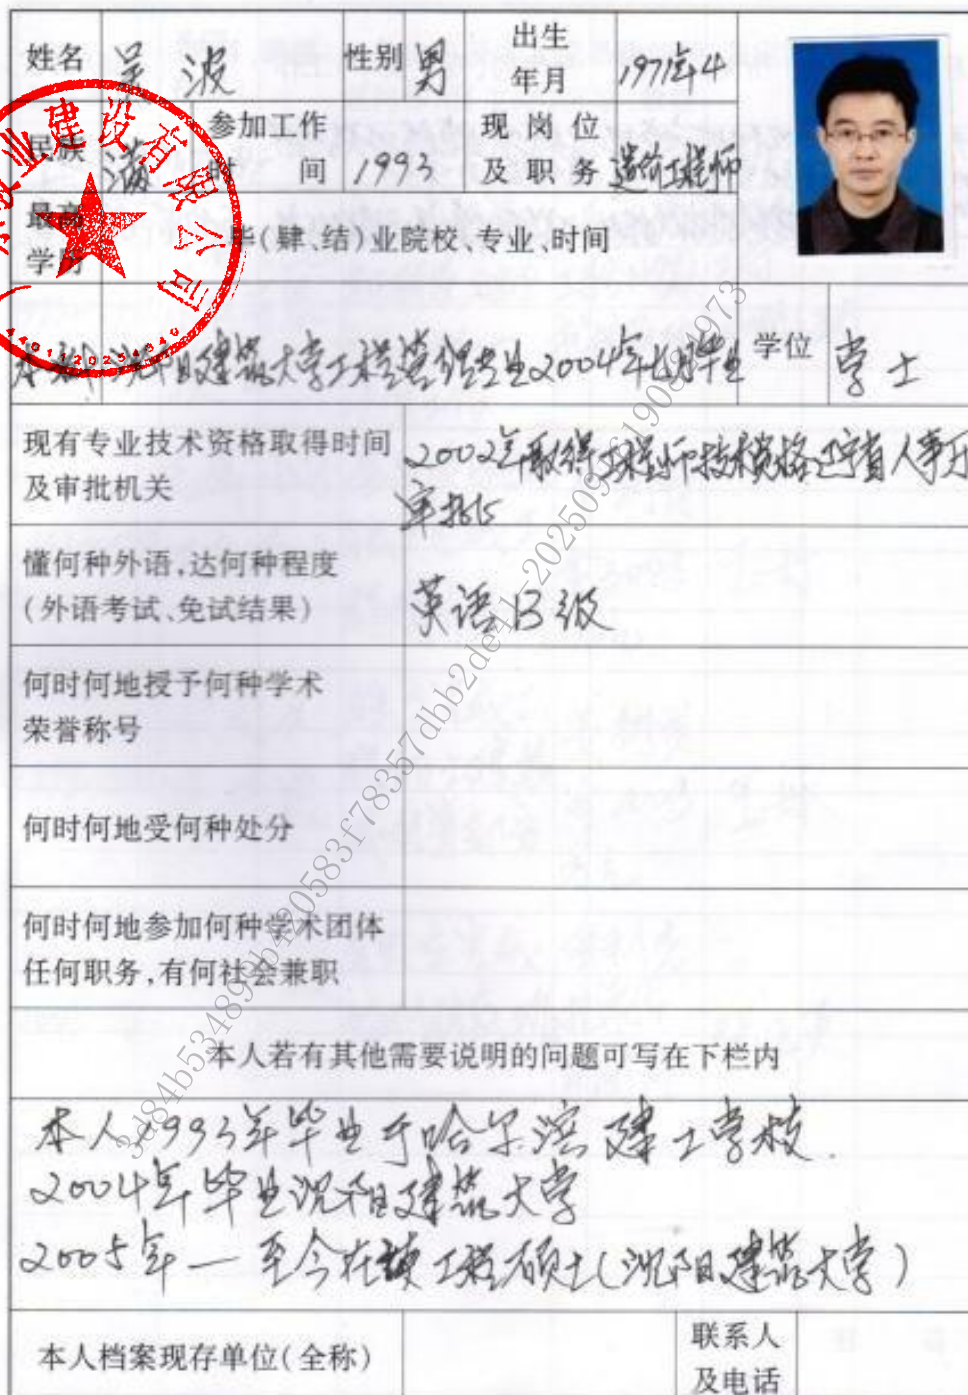 姓名 吴波 性别 男 出生年月 1971年4
民族 满 参加工作时间 1993 现岗位及职务 造价工程师
最高学历 毕(肄、结)业院校、专业、时间
本科 沈阳建筑大学工程管理专业2004年七月毕业 学位 学士
现有专业技术资格取得时间
及审批机关
2002年取得工程师技术资格辽宁省人事厅
审批
懂何种外语,达何种程度
(外语考试、免试结果)
英语B级
何时何地授予何种学术
荣誉称号
何时何地受何种处分
何时何地参加何种学术团体
任何职务,有何社会兼职
本人若有其他需要说明的问题可写在下栏内
本人1993年毕业于哈尔滨建工学校.
2004年毕业沈阳建筑大学
2005年—至今在读工程硕士(沈阳建筑大学)
本人档案现存单位(全称)
联系人
及电话
业建设有限公司